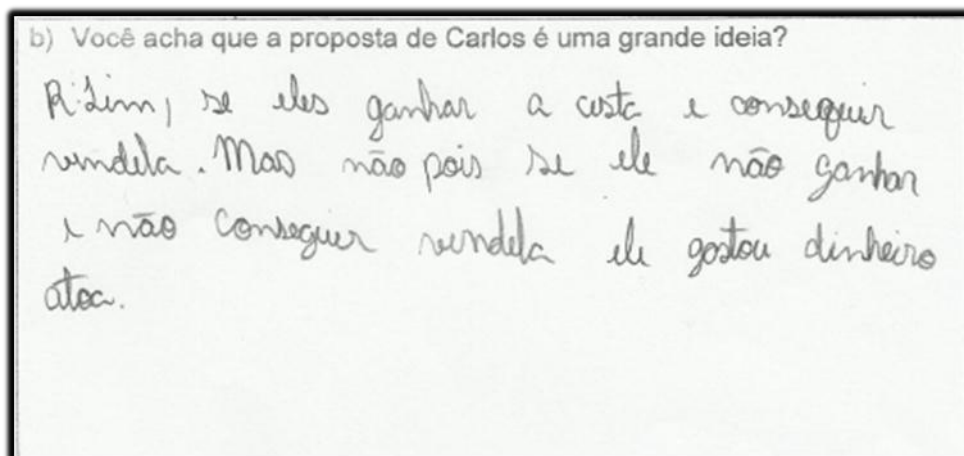 b) Você acha que a proposta de Carlos é uma grande ideia?
R: Sim, se eles ganhar a custa e conseguir
vendela. Mas não pois se ele não ganhar
e não conseguir vendela ele gastou dinheiro
atoa.